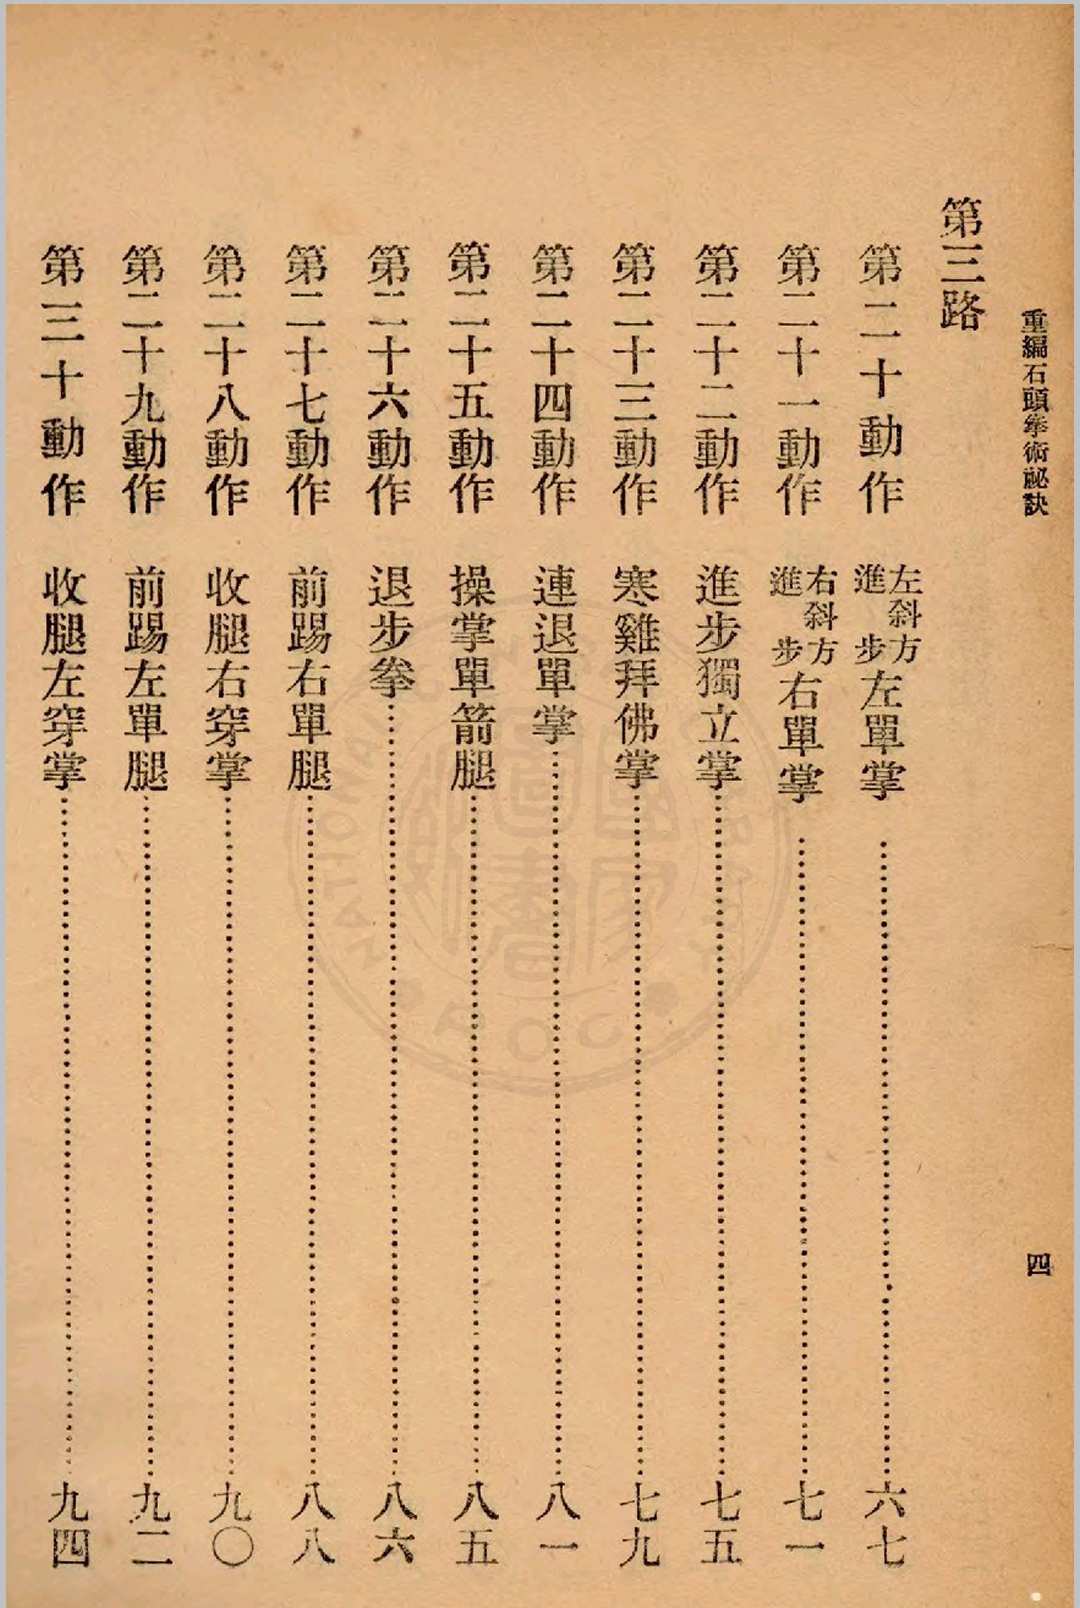 重編石頭拳術祕訣
四
第三路
第二十動作 左斜方進步左單掌……六七
第二十一動作 右斜方進步右單掌……七一
第二十二動作 進步獨立掌……七五
第二十三動作 寒雞拜佛掌……七九
第二十四動作 連退單掌……八一
第二十五動作 操掌單箭腿……八五
第二十六動作 退步拳……八六
第二十七動作 前踢右單腿……八八
第二十八動作 收腿右穿掌……九〇
第二十九動作 前踢左單腿……九二
第三十動作 收腿左穿掌……九四